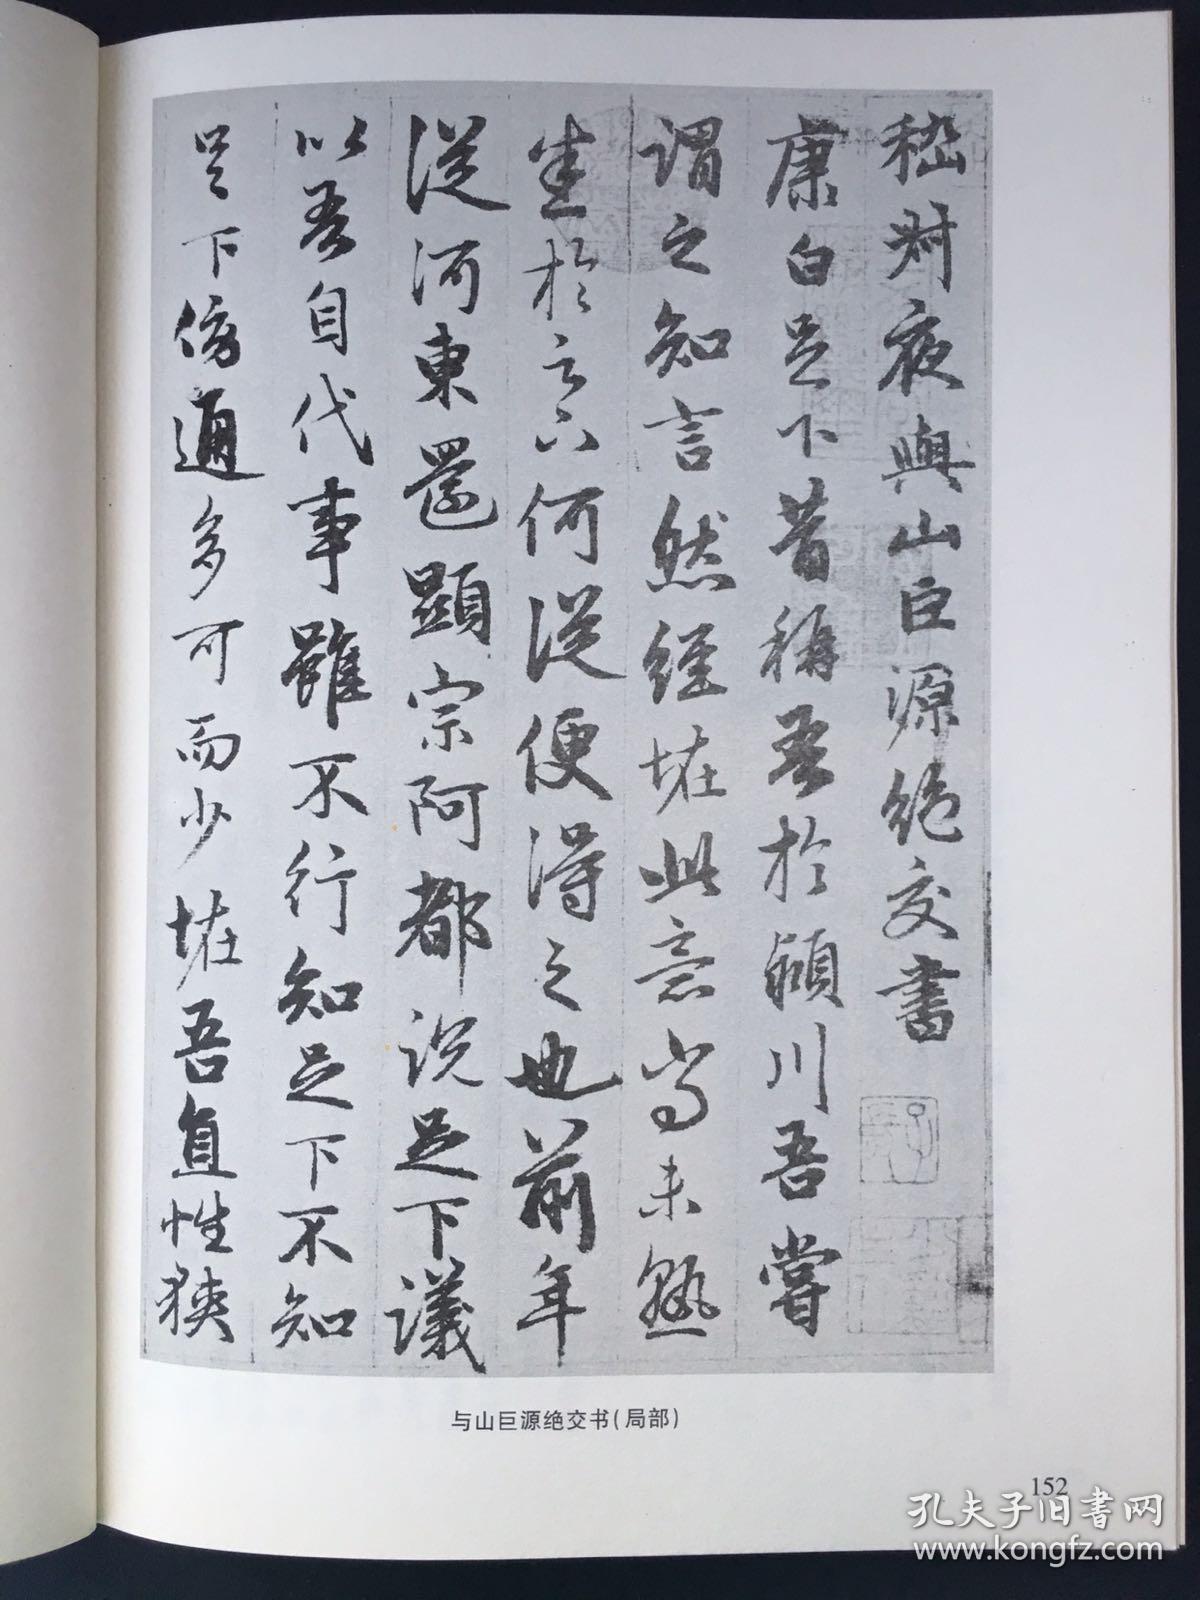 嵇叔夜與山巨源絕交書
康白足下昔稱吾於潁川吾嘗
謂之知言然經怪此意尚未熟
悉於足下何從便得之也前年
從河東還顯宗阿都說足下議
以吾自代事雖不行知足下不知
足下傍通多可而少怪吾直性狹
与山巨源绝交书(局部)
152
孔夫子旧书网
www.kongfz.com